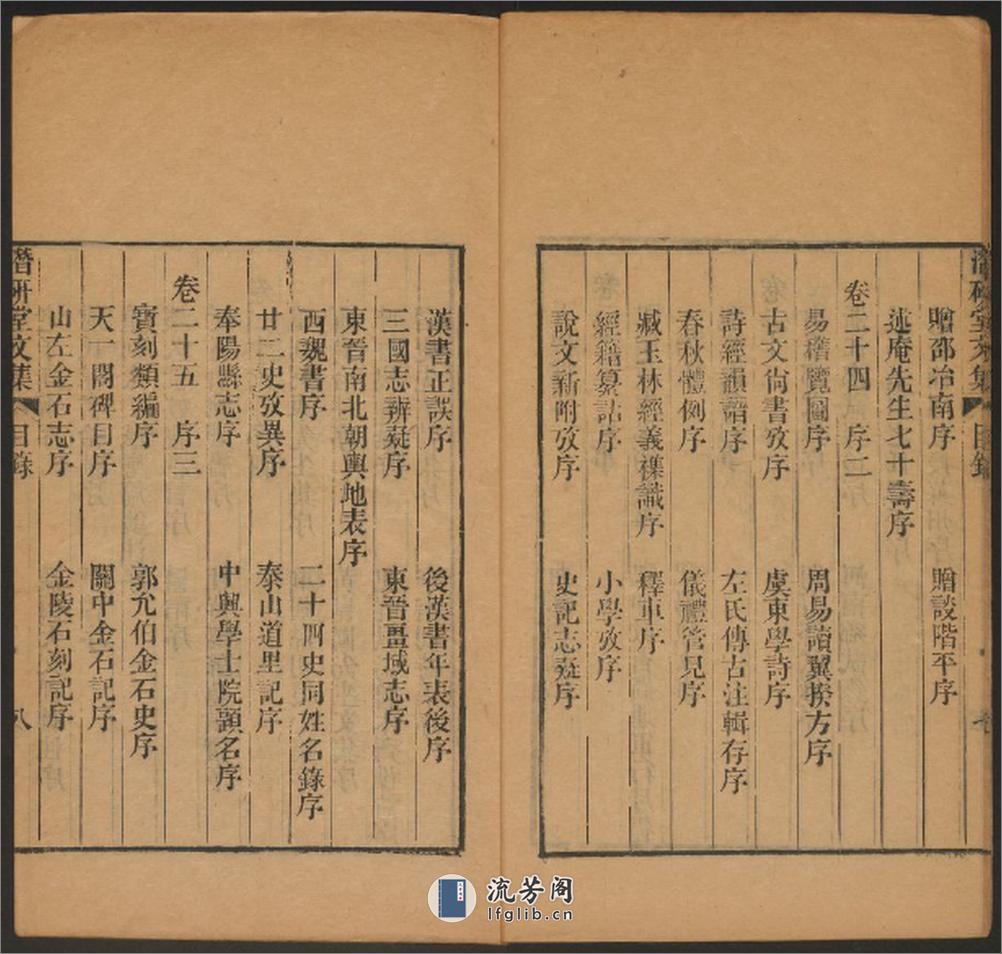 潛研堂文集 目錄 七
贈邵冶南序 贈談階平序
述庵先生七十壽序
卷二十四 序二
易稽覽圖序 周易讀翼揆方序
古文尙書攷序 虞東學詩序
詩經韻譜序 左氏傳古注輯存序
春秋體例序 儀禮管見序
臧玉林經義襍識序 釋車序
經籍纂詁序 小學攷序
說文新附攷序 史記志疑序
漢書正誤序 後漢書年表後序
三國志辨疑序 東晉畺域志序
東晉南北朝輿地表序
西魏書序 二十四史同姓名錄序
廿二史攷異序 泰山道里記序
奉陽縣志序 中興學士院題名序
卷二十五 序三
寶刻類編序 郭允伯金石史序
天一閣碑目序 關中金石記序
山左金石志序 金陵石刻記序
潛研堂文集 目錄 八
流芳阁
lfglib.cn